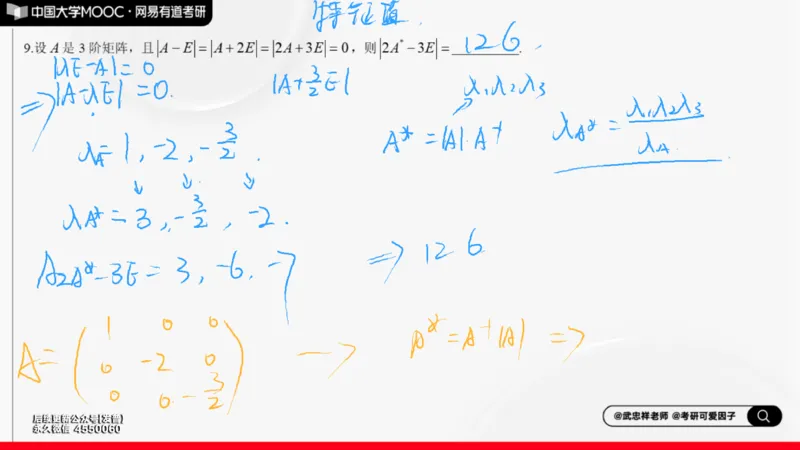 中国大学MOOC·网易有道考研
特征值
9.设 A 是 3 阶矩阵，且|A−E|=|A+2E|=|2A+3E|=0，则|2A*−3E|=126.
|λE-A|=0
⇒|A-λE|=0.
|A+3/2E|
λ₁λ₂λ₃
A*=|A|·A⁻¹
λA*=λ₁λ₂λ₃/λA.
λA=1,-2,-3/2.
↓ ↓ ↓
λA*=3,-3/2,-2.
λ2A*-3E=3,-6,-7
⇒126
A=(1 0 0
0 -2 0
0 0 -3/2)
→ A*=A⁻¹|A| ⇒
后续更新公众号[发信]
永久微信 4550060
@武忠祥老师 @考研可爱因子